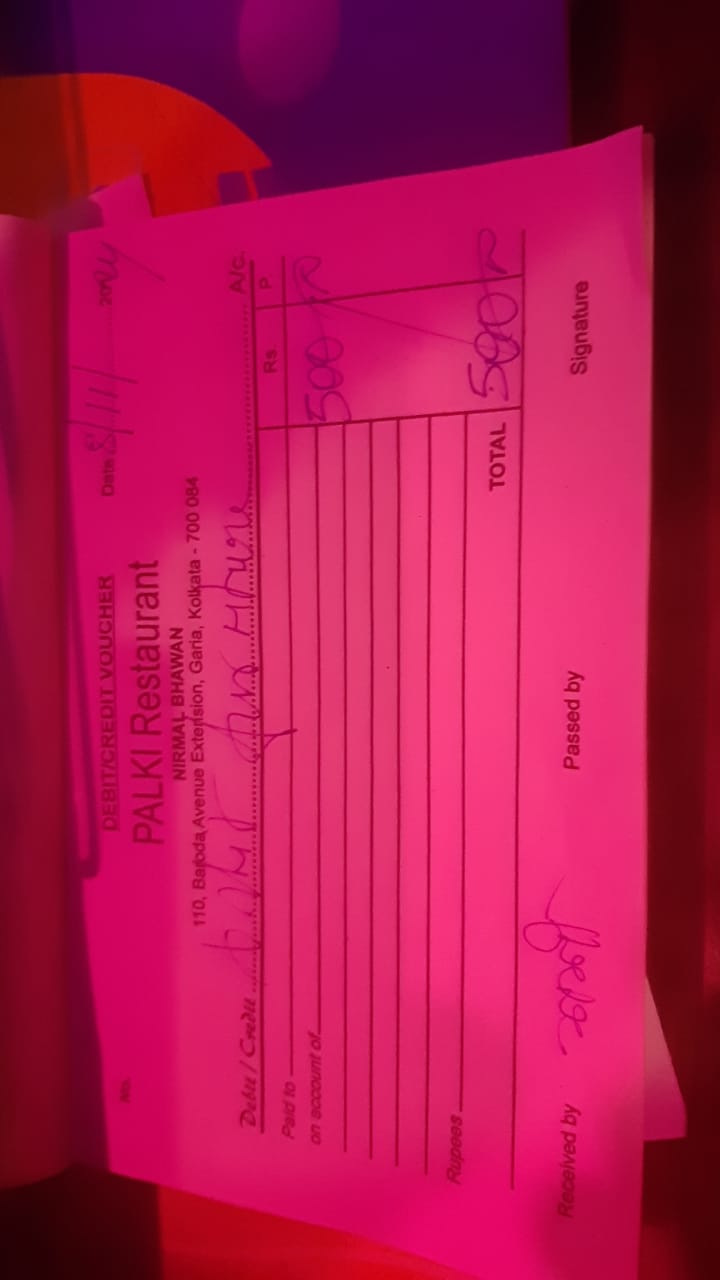 DEBIT/CREDIT VOUCHER
No.
Date 8/11/ 2024
PALKI Restaurant
NIRMAL BHAWAN
110, Baroda Avenue Extension, Garia, Kolkata - 700 084
Debit / Credit A/c.
Paid to Rs. P.
on account of 500
Rupees
TOTAL 500
Received by Passed by Signature